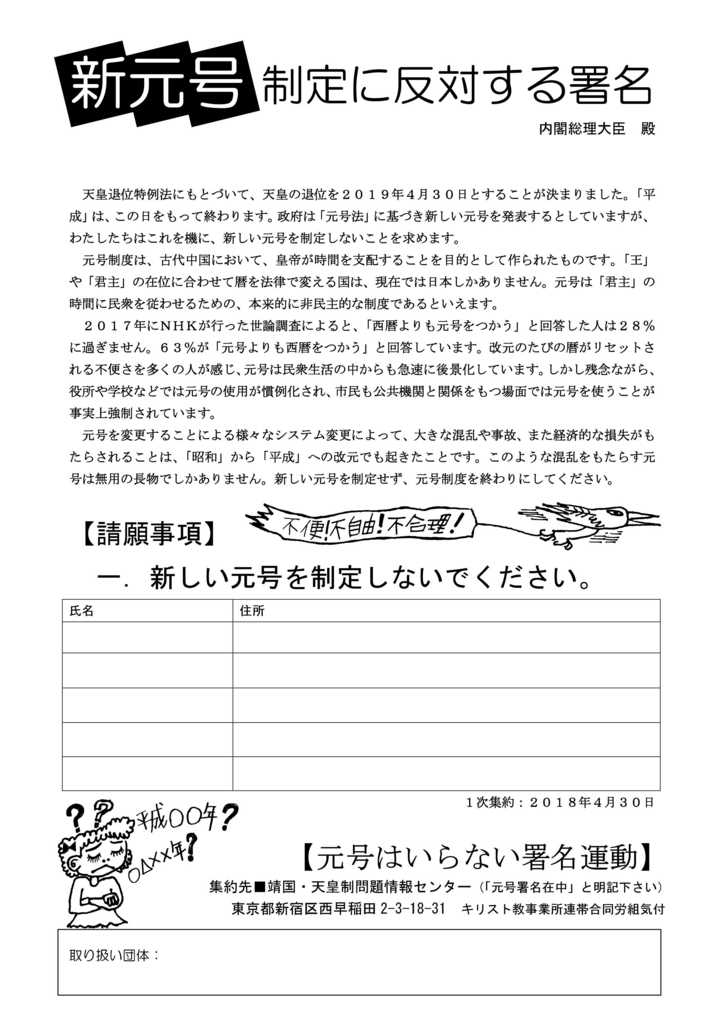 新元号制定に反対する署名
内閣総理大臣　殿
　天皇退位特例法にもとづいて、天皇の退位を２０１９年４月３０日とすることが決まりました。「平
成」は、この日をもって終わります。政府は「元号法」に基づき新しい元号を発表するとしていますが、
わたしたちはこれを機に、新しい元号を制定しないことを求めます。
　元号制度は、古代中国において、皇帝が時間を支配することを目的として作られたものです。「王」
や「君主」の在位に合わせて暦を法律で変える国は、現在では日本しかありません。元号は「君主」の
時間に民衆を従わせるための、本来的に非民主的な制度であるといえます。
　２０１７年にＮＨＫが行った世論調査によると、「西暦よりも元号をつかう」と回答した人は２８％
に過ぎません。６３％が「元号よりも西暦をつかう」と回答しています。改元のたびの暦がリセットさ
れる不便さを多くの人が感じ、元号は民衆生活の中からも急速に後景化しています。しかし残念ながら、
役所や学校などでは元号の使用が慣例化され、市民も公共機関と関係をもつ場面では元号を使うことが
事実上強制されています。
　元号を変更することによる様々なシステム変更によって、大きな混乱や事故、また経済的な損失がも
たらされることは、「昭和」から「平成」への改元でも起きたことです。このような混乱をもたらす元
号は無用の長物でしかありません。新しい元号を制定せず、元号制度を終わりにしてください。
不便!不自由!不合理!
【請願事項】
一．新しい元号を制定しないでください。
氏名　住所
１次集約：２０１８年４月３０日
??
平成〇〇年?
〇△××年?
【元号はいらない署名運動】
集約先■靖国・天皇制問題情報センター（「元号署名在中」と明記下さい）
東京都新宿区西早稲田 2-3-18-31　キリスト教事業所連帯合同労組気付
取り扱い団体：